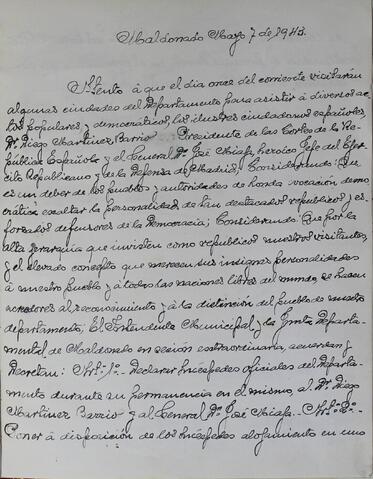 Maldonado Mayo 7 de 1943.
Atento á que el dia once del corriente visitarán
algunas ciudades del Departamento para asistir á diversos ac-
tos populares y democráticos, los ilustres ciudadanos españoles,
Dr. Diego Martínez Barrio Presidente de las Cortes de la Re-
pública Española y el General Dn. José Miaja, heroico Jefe del Ejér-
cito Republicano y de la Defensa de Madrid; Considerando: Que
es un deber de los pueblos y autoridades de honda vocación demo-
crática exaltar la personalidad de tan destacados republicos y es-
forzados defensores de la Democracia; Considerando: Que por la
alta jerarquía que invisten como republicos nuestros visitantes,
y el elevado concepto que merecen sus insignes personalidades
á nuestro pueblo y á todas las naciones libres del mundo, se hacen
acreedores al reconocimiento y á la distinción del pueblo de nuestro
departamento, El Intendente Municipal y la Junta Departa-
mental de Maldonado en sesión extraordinaria, acuerdan y
Decretan: Art. 1º- Declarar huéspedes oficiales del Departa-
mento durante su permanencia en el mismo, al Dr. Diego
Martínez Barrio y al General Dn. José Miaja.- Art. 2º-
Poner á disposición de los huéspedes alojamiento en uno